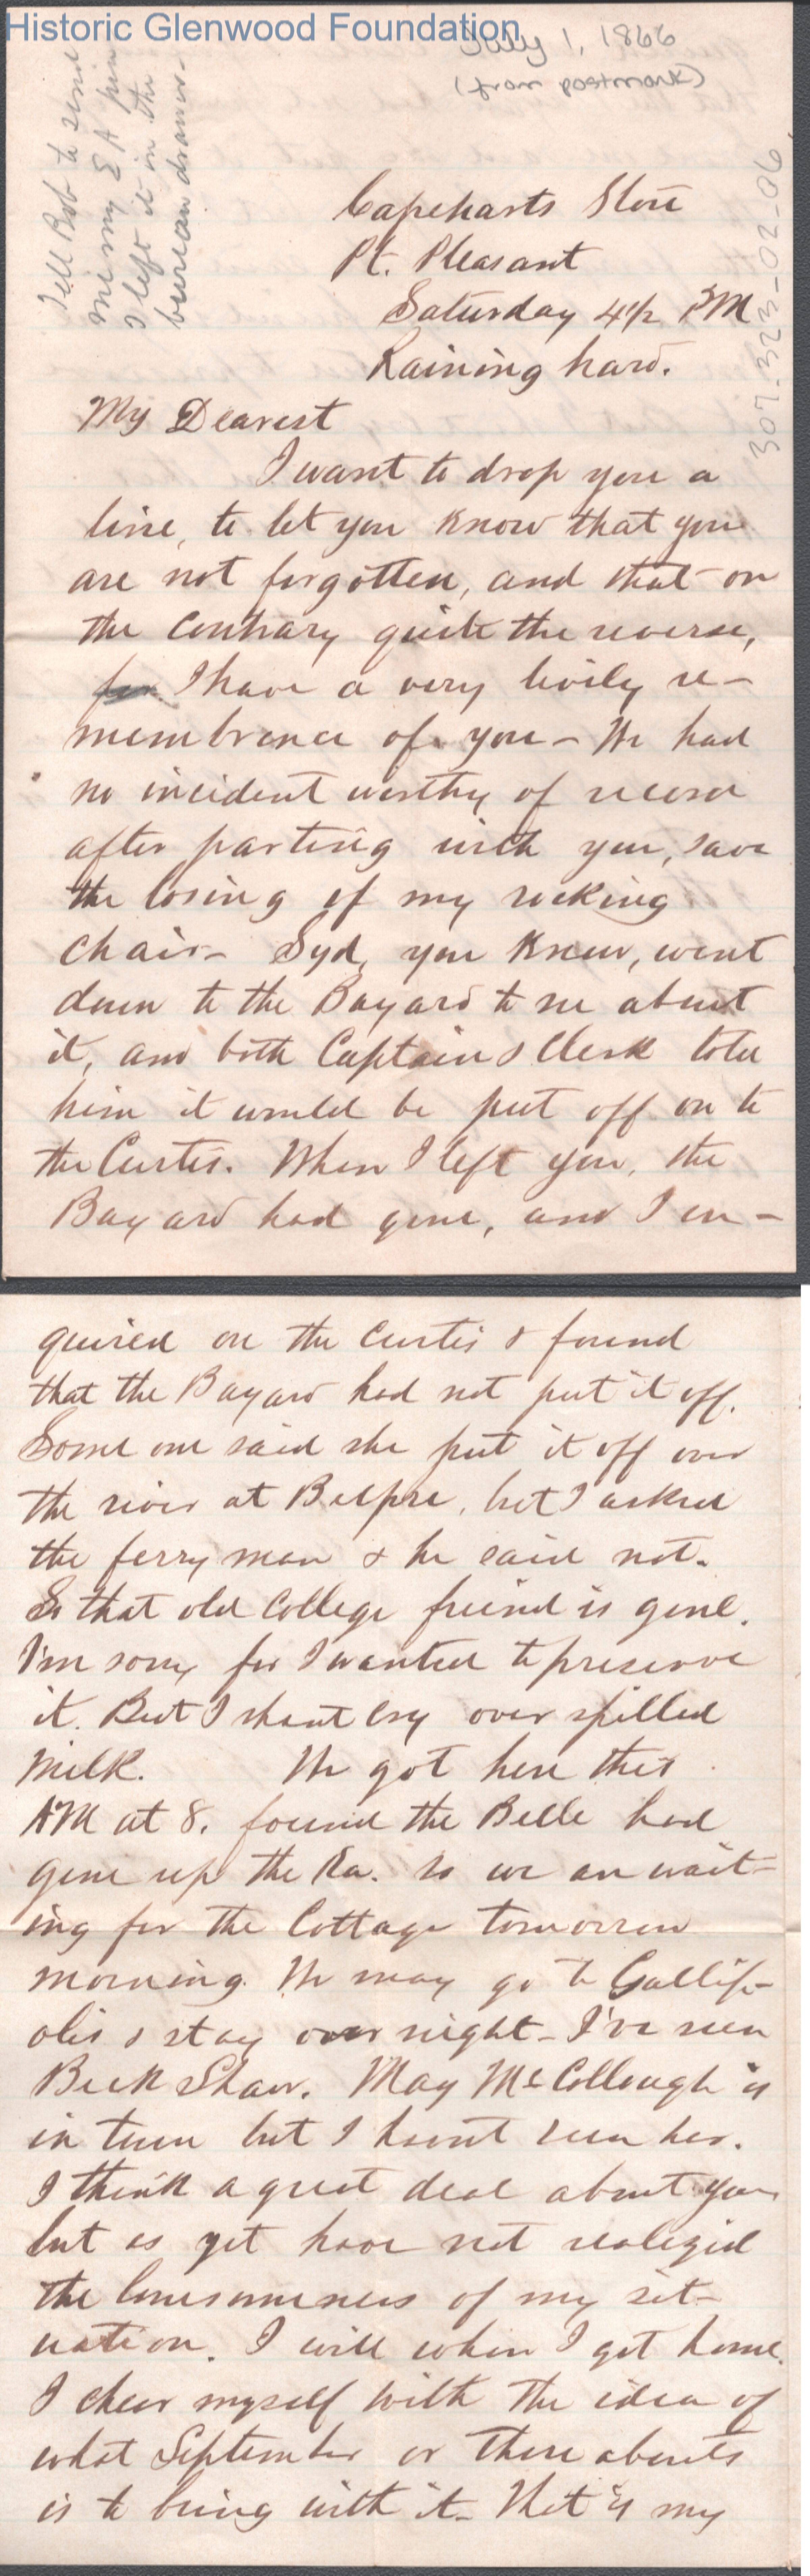 Historic Glenwood Foundation
July 1, 1866
(from postmark)
Tell Bob to send
me my E A pin
I left it in the
bureau drawer.
307-323-02-06
Capeharts Store
Pt. Pleasant
Saturday 4 1/2 PM
Raining hard.
My Dearest
I want to drop you a
line, to let you know that you
are not forgotten, and that on
the contrary quite the reverse,
for I have a very lively re-
membrance of you - We had
no incident worthy of record
after parting with you, save
the losing of my rocking
chair - Syd, you know, went
down to the Bayard to see about
it, and both Captain & Clerk told
him it would be put off on to
the Curtis. When I left you, the
Bayard had gone, and I en-
quired on the Curtis & found
that the Bayard had not put it off.
Some one said she put it off over
the river at Belpre, but I asked
the ferry man & he said not.
So that old College friend is gone.
I'm sorry for I wanted to preserve
it. But I shant cry over spilled
milk. We got here this
AM at 8. found the Belle had
gone up the Ka. so we are wait-
ing for the Cottage tomorrow
morning. We may go to Gallip-
olis & stay over night - I've seen
Beck Shaw. May McCollough is
in town but I havnt seen her.
I think a great deal about you
but as yet have not realized
the lonesomeness of my sit-
uation. I will when I get home.
I cheer myself with the idea of
what September or there abouts
is to bring with it - That is my